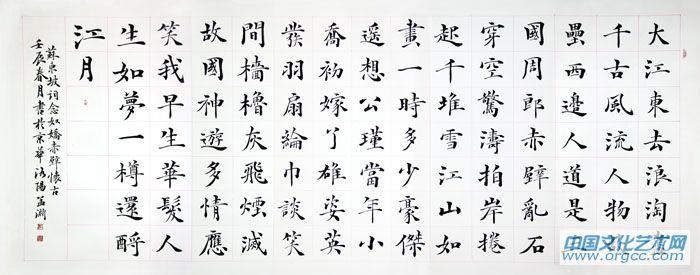 大江東去浪淘
千古風流人物
壘西邊人道是
國周郎赤壁亂石
穿空驚濤拍岸捲
起千堆雪江山如
畫一時多少豪傑
遙想公瑾當年小
喬初嫁了雄姿英
發羽扇綸巾談笑
間檣櫓灰飛煙滅
故國神遊多情應
笑我早生華髮人
生如夢一樽還酹
江月
蘇東坡詞念奴嬌赤壁懷古
壬辰春月書於京華
中国文化艺术网
www.orgcc.com